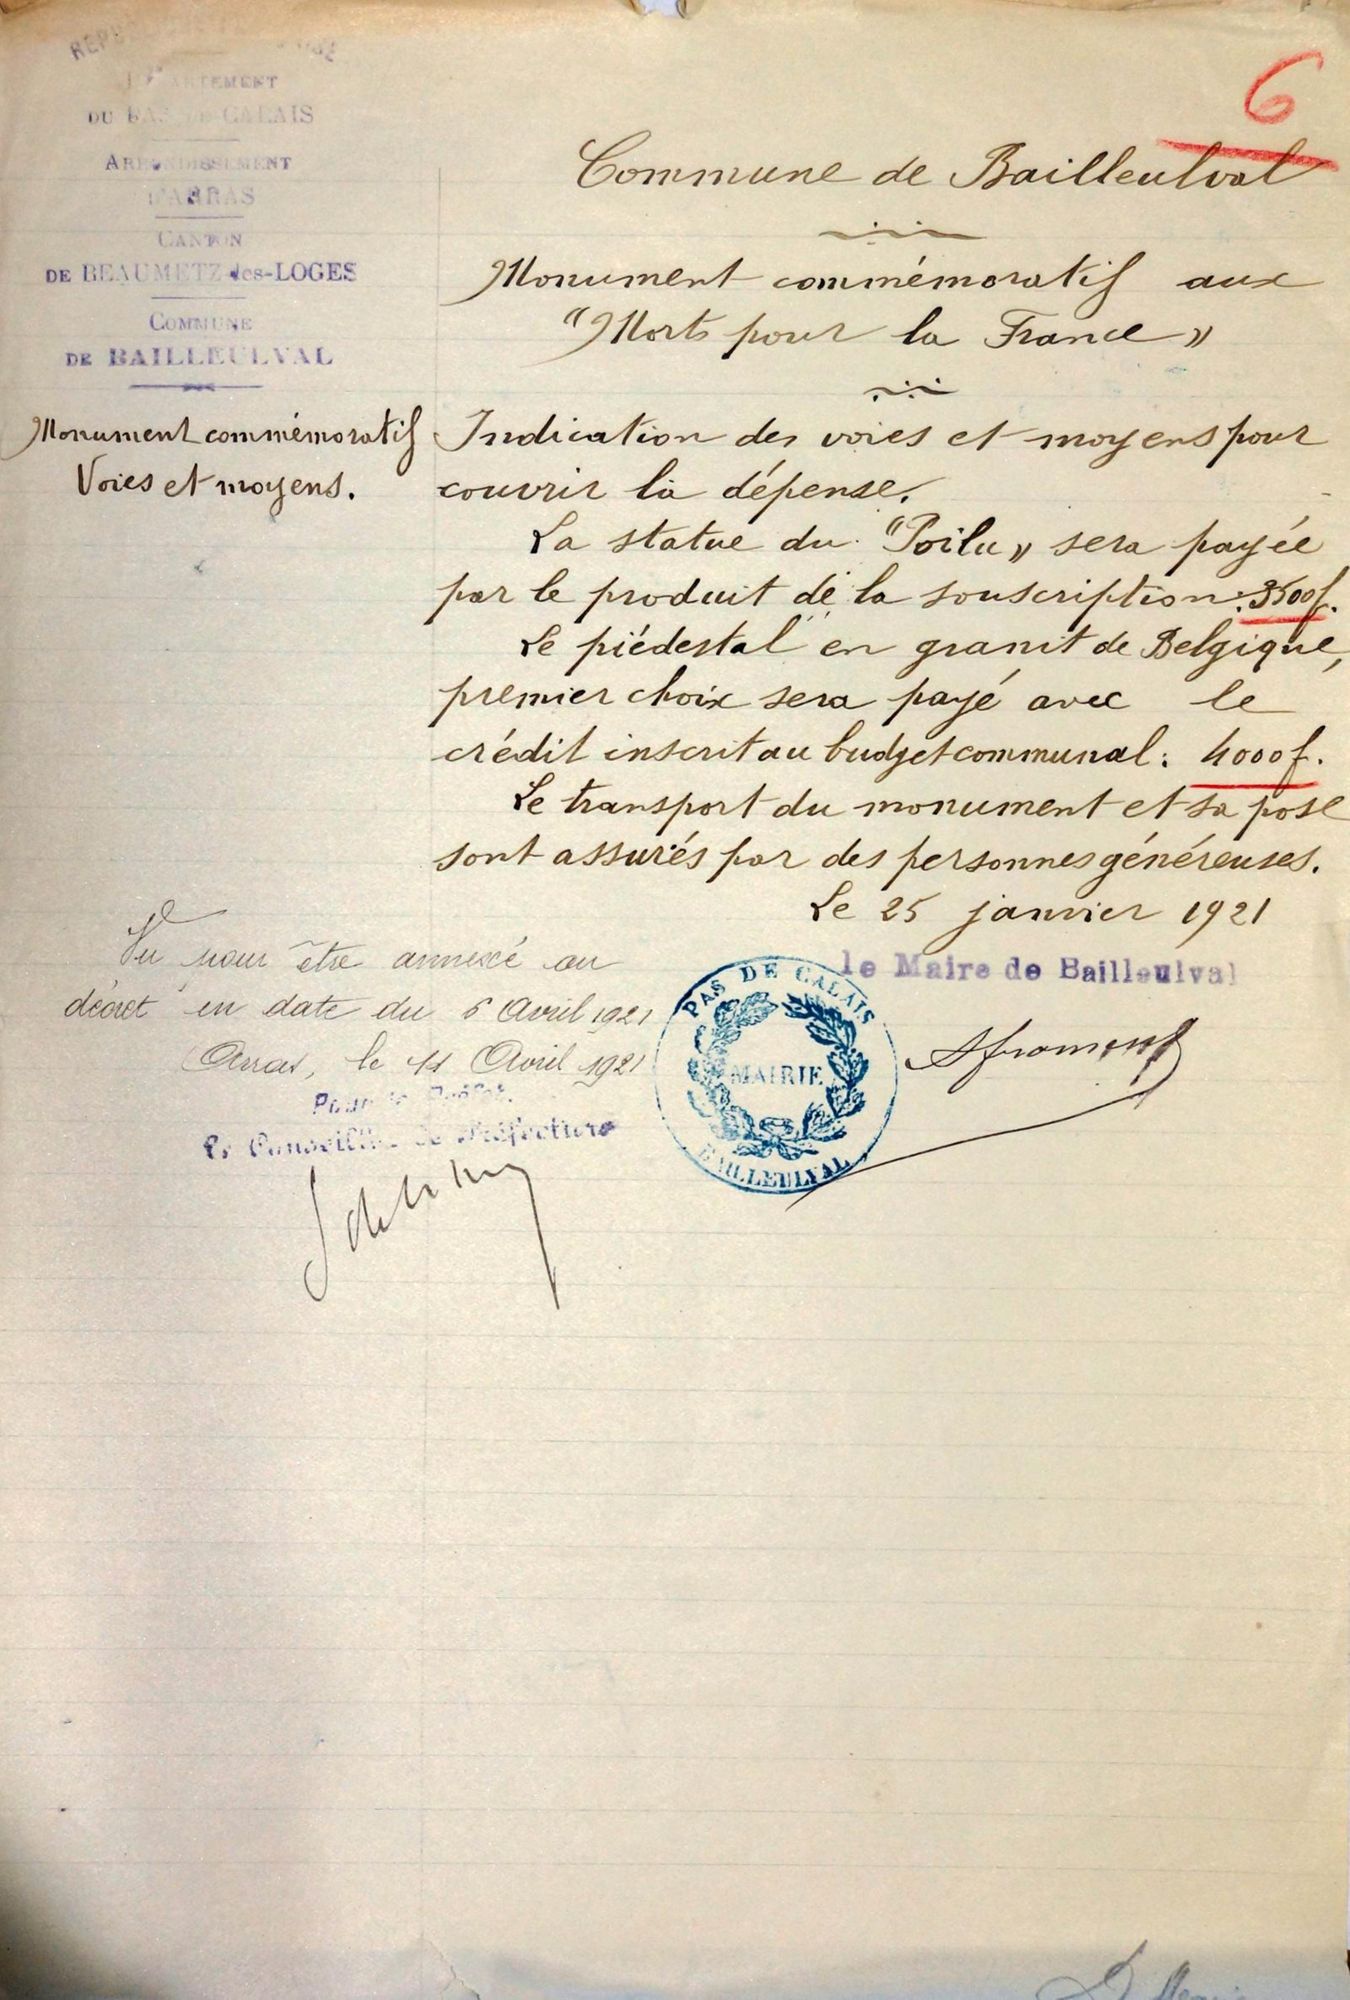 RÉPUBLIQUE FRANÇAISE
DÉPARTEMENT
DU PAS-DE-CALAIS
ARRONDISSEMENT
D'ARRAS
CANTON
DE BEAUMETZ-les-LOGES
COMMUNE
DE BAILLEULVAL
Monument commémoratif
Voies et moyens.
6
Commune de Bailleulval
Monument commémoratif aux
"Morts pour la France"
Indication des voies et moyens pour
couvrir la dépense.
La statue du "Poilu" sera payée
par le produit de la souscription: 3500f.
Le piédestal en granit de Belgique,
premier choix sera payé avec le
crédit inscrit au budget communal: 4000f.
Le transport du monument et sa pose
sont assurés par des personnes généreuses.
Le 25 janvier 1921
le Maire de Bailleulval
PAS DE CALAIS
MAIRIE
BAILLEULVAL
Vu pour être annexé au
décret en date du 6 Avril 1921
Arras, le 11 Avril 1921
Pour le Préfet,
Le Conseiller de Préfecture